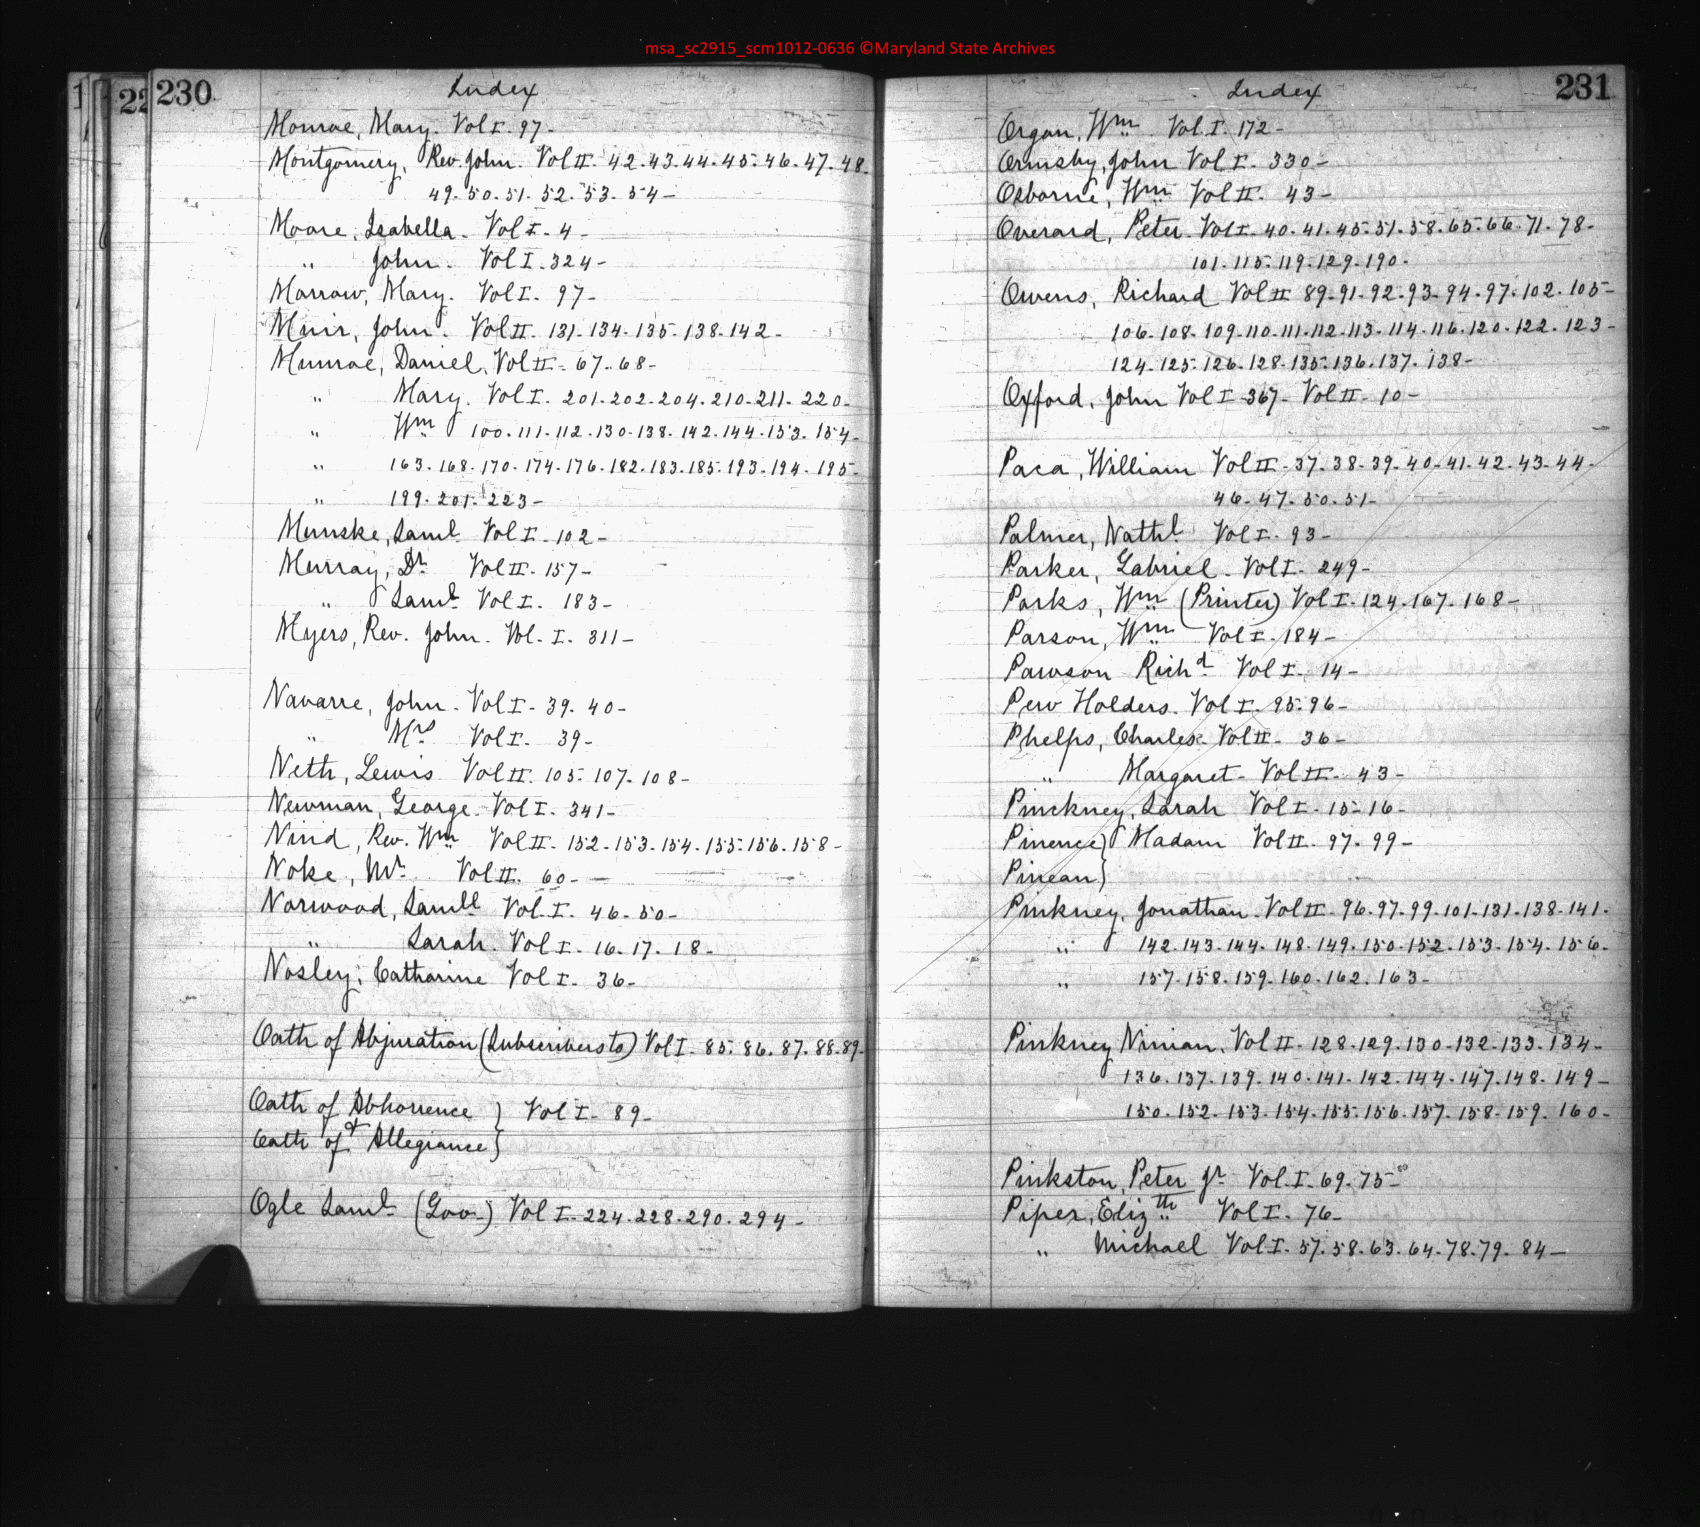 msa_sc2915_scm1012-0636 ©Maryland State Archives
230
Index
Monroe, Mary. Vol I. 97-
Montgomery, Rev. John. Vol II. 42.43.44.45.46.47.48.
49.50.51.52.53.54-
Moore, Isabella. Vol I. 4-
" John. Vol I. 324-
Morrow, Mary. Vol I. 97-
Muir, John. Vol II. 131.134.135.138.142-
Munroe, Daniel, Vol II. 67.68-
" Mary. Vol I. 201.202.204.210.211.220-
" Wm 100.111.112.130.138.142.144.153.154-
" 163.168.170.174.176.182.183.185.193.194.195-
" 199.201.223-
Munske, Saml Vol I. 102-
Murray, Dr. Vol II. 157-
" Saml Vol I. 183-
Myers, Rev. John. Vol. I. 311-
Navarre, John. Vol I. 39.40-
" Mrs Vol I. 39-
Neth, Lewis Vol II. 105.107.108-
Newman, George. Vol I. 341-
Nind, Rev. Wm Vol II. 152.153.154.155.156.158-
Noke, Mr. Vol II. 60-
Norwood, Samll Vol. I. 46.50-
" Sarah. Vol I. 16.17.18-
Nosley, Catharine Vol I. 36-
Oath of Abjuration (Subscribers to) Vol I. 85.86.87.88.89-
Oath of Abhorrence } Vol I. 89-
Oath of Allegiance }
Ogle Saml (Gov.) Vol I. 224.228.290.294-
Index
231
Organ, Wm Vol. I. 172-
Ormsby, John Vol I. 330-
Osborne, Wm Vol II. 43-
Overard, Peter. Vol I. 40.41.45.51.58.65.66.71.78-
101.115.119.129.190.
Owens, Richard Vol II 89.91.92.93.94.97.102.105-
106.108.109.110.111.112.113.114.116.120.122.123-
124.125.126.128.135.136.137.138-
Oxford, John Vol I 367- Vol II. 10-
Paca, William Vol II. 37.38.39.40.41.42.43.44-
46.47.50.51-
Palmer, Nathl Vol I. 93-
Parker, Gabriel. Vol I. 249-
Parks, Wm (Printer) Vol I. 124.167.168-
Parson, Wm Vol I. 184-
Pawson Richd Vol I. 14-
Pew Holders. Vol I. 95.96-
Phelps, Charles. Vol II. 36-
" Margaret. Vol II. 43-
Pinckney, Sarah Vol I. 15.16-
Pinence } Madam Vol II. 97.99-
Pinean }
Pinkney, Jonathan. Vol II. 96.97.99.101.131.138.141.
" 142.143.144.148.149.150.152.153.154.156.
" 157.158.159.160.162.163-
Pinkney Ninian. Vol II. 128.129.130.132.133.134-
136.137.139.140.141.142.144.147.148.149-
150.152.153.154.155.156.157.158.159.160-
Pinkston, Peter Jr Vol. I. 69.75-
Piper, Elizth Vol I. 76-
" Michael Vol I. 57.58.63.64.78.79.84-